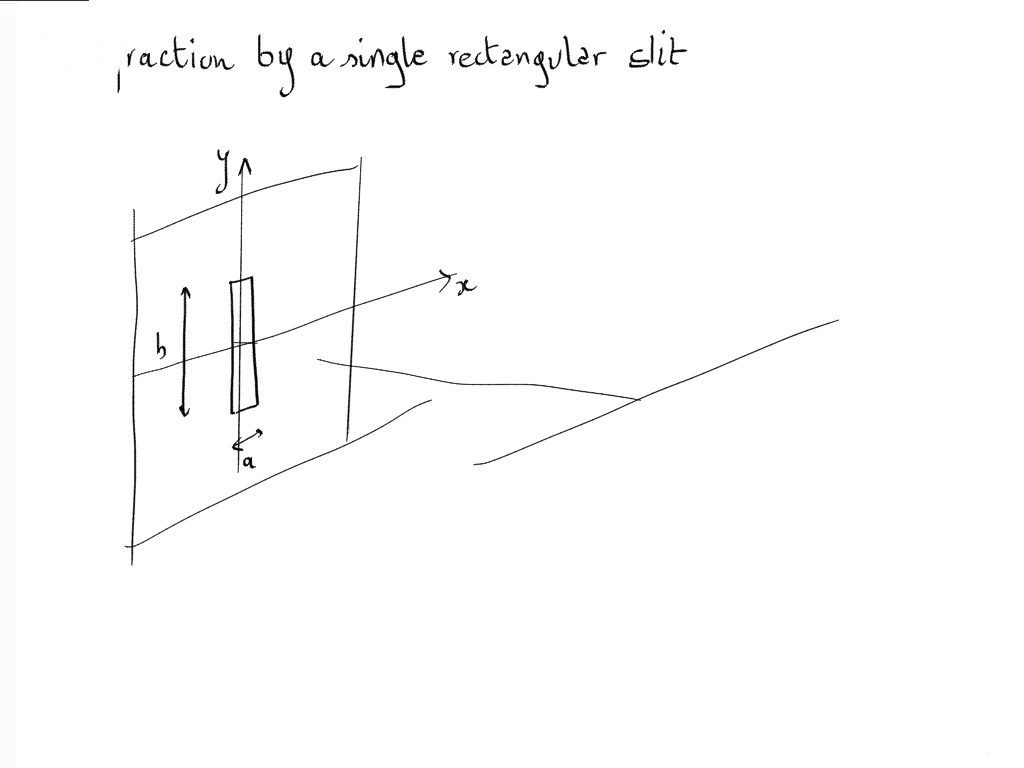 raction by a single rectangular slit
y
x
b
a